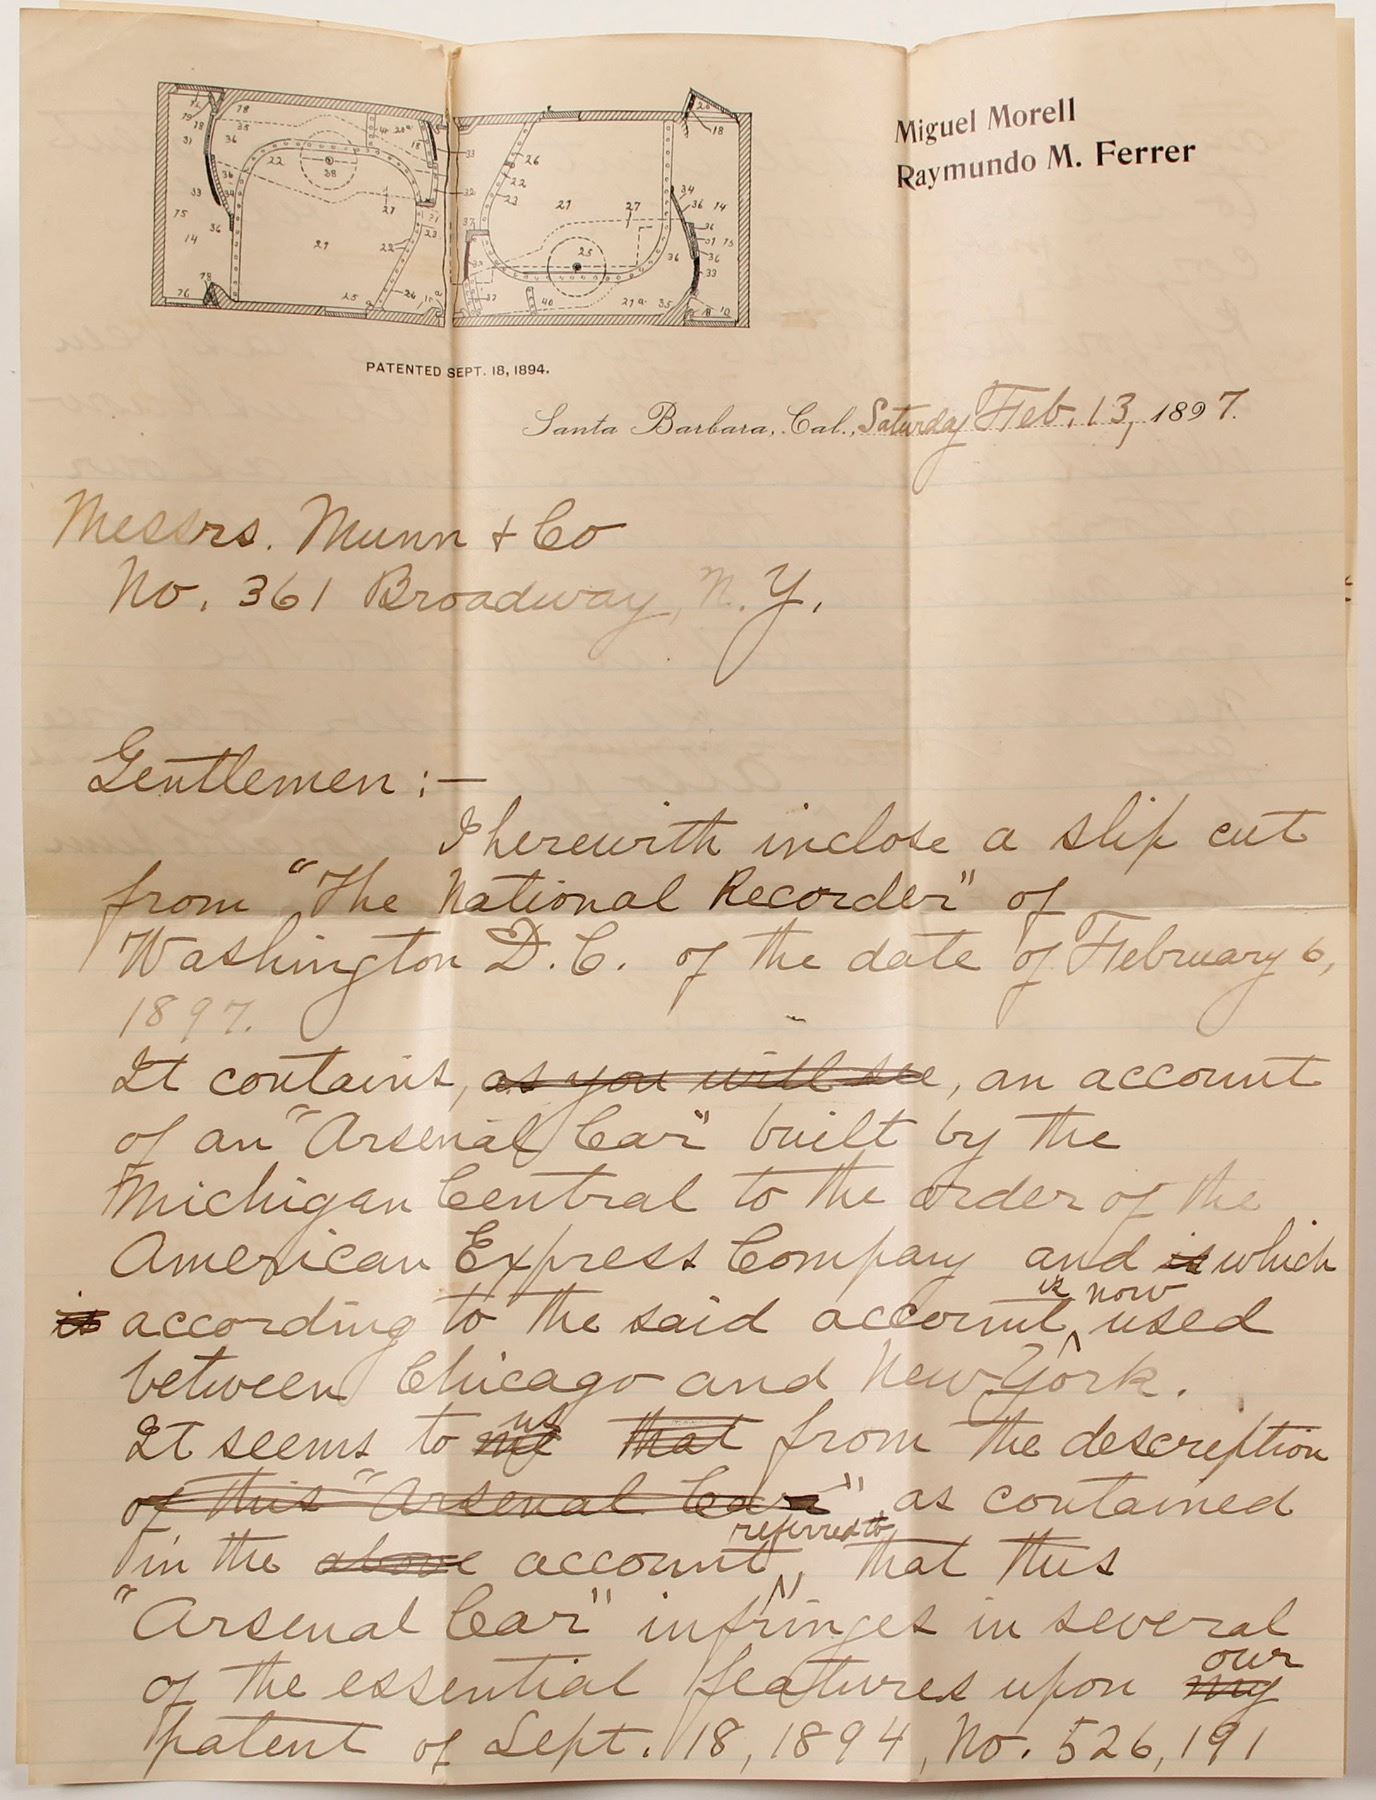 Miguel Morell
Raymundo M. Ferrer
PATENTED SEPT. 18, 1894.
Santa Barbara, Cal., Saturday Feb. 13, 1897.
Messrs. Munn & Co
No. 361 Broadway, N.Y.
Gentlemen :—
I herewith inclose a slip cut
from "The National Recorder" of
Washington D.C. of the date of February 6,
1897.
It contains, as you will see, an account
of an "Arsenal Car" built by the
Michigan Central to the order of the
American Express Company and is which
is according to the said account, is now used
between Chicago and New York.
It seems to me us that from the description
of this "Arsenal Car" as contained
in the above account, referred to that this
"Arsenal Car" infringes in several
of the essential features upon my our
patent of Sept. 18, 1894, No. 526,191